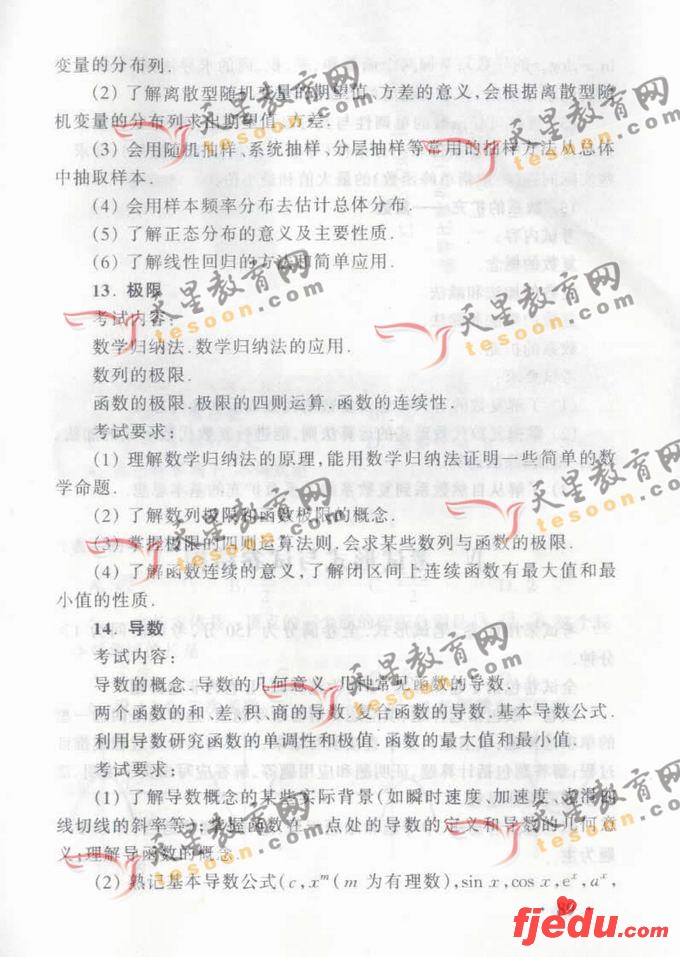 变量的分布列.
(2) 了解离散型随机变量的期望值、方差的意义,会根据离散型随
机变量的分布列求出期望值、方差.
(3) 会用随机抽样、系统抽样、分层抽样等常用的抽样方法从总体
中抽取样本.
(4) 会用样本频率分布去估计总体分布.
(5) 了解正态分布的意义及主要性质.
(6) 了解线性回归的方法和简单应用.
13. 极限
考试内容:
数学归纳法.数学归纳法的应用.
数列的极限.
函数的极限.极限的四则运算.函数的连续性.
考试要求:
(1) 理解数学归纳法的原理,能用数学归纳法证明一些简单的数
学命题.
(2) 了解数列极限和函数极限的概念.
(3) 掌握极限的四则运算法则,会求某些数列与函数的极限.
(4) 了解函数连续的意义,了解闭区间上连续函数有最大值和最
小值的性质.
14. 导数
考试内容:
导数的概念.导数的几何意义.几种常见函数的导数.
两个函数的和、差、积、商的导数.复合函数的导数.基本导数公式.
利用导数研究函数的单调性和极值.函数的最大值和最小值.
考试要求:
(1) 了解导数概念的某些实际背景(如瞬时速度、加速度、光滑曲
线切线的斜率等);掌握函数在一点处的导数的定义和导数的几何意
义;理解导函数的概念.
(2) 熟记基本导数公式(c,xᵐ(m 为有理数),sin x,cos x,eˣ,aˣ,
天星教育网
tesoon.com
天星教育网
tesoon.com
天星教育网
tesoon.com
天星教育网
tesoon.com
天星教育网
tesoon.com
天星教育网
tesoon.com
天星教育网
tesoon.com
天星教育网
tesoon.com
fjedu.com